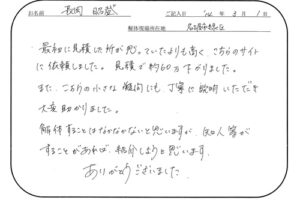 お名前 長岡 昭蔵
ご記入日 '14 年 3 月 1 日
解体現場所在地 名古屋市緑区
最初に見積した所が思っていたよりも高く、こちらのサイト
に依頼しました。見積で約60万下がりました。
また、こちらの小さな疑問にも、丁寧に説明いただき
大変助かりました。
解体することはなかなかないと思いますが、知人等が
することがあれば、紹介しようと思います。
ありがとうございました